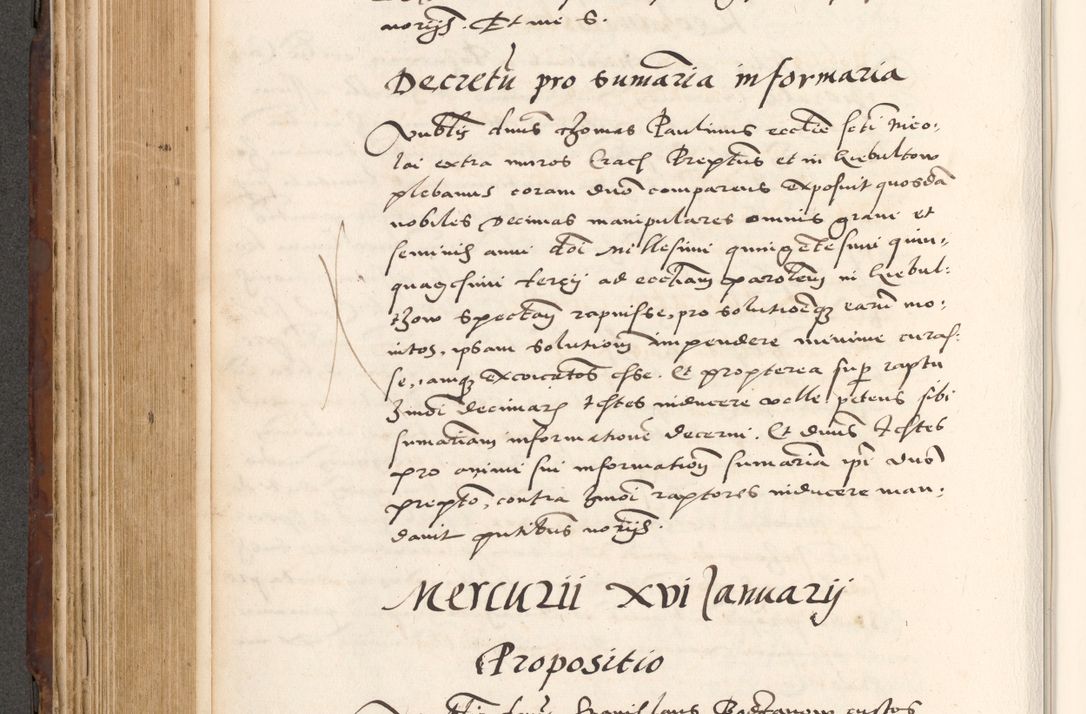 norijs. Et me S.
Decretū pro sumaria informaria
dnus Thomas Paulinus ecctie scti Nico-
lai extra muros Crac Preptus et in Kiebultow
plebanus coram dno comparens exposuit quosdā
nobiles decimas manipulares omnis grani et
seminis anni dni Millesimi quingētesimi quin-
quagesimi tercij ad eccliam parolem in Kiebul-
thow spectan rapuisse, pro solutioneque earū mo-
nitos, ipsam solutionem impendere minime curas-
se, iamque excoicatos esse. Et propterea sup raptu
hmoi decimar testes inducere velle petens sibi
sumariam informationē decerni. Et dnus testes
pro animi sui information sumariā ipi dno
prepto, contra hmoi raptores inducere man-
davit pntibus norijs.
Mercurii XVI Januarij
Propositio
Stanislaus custos